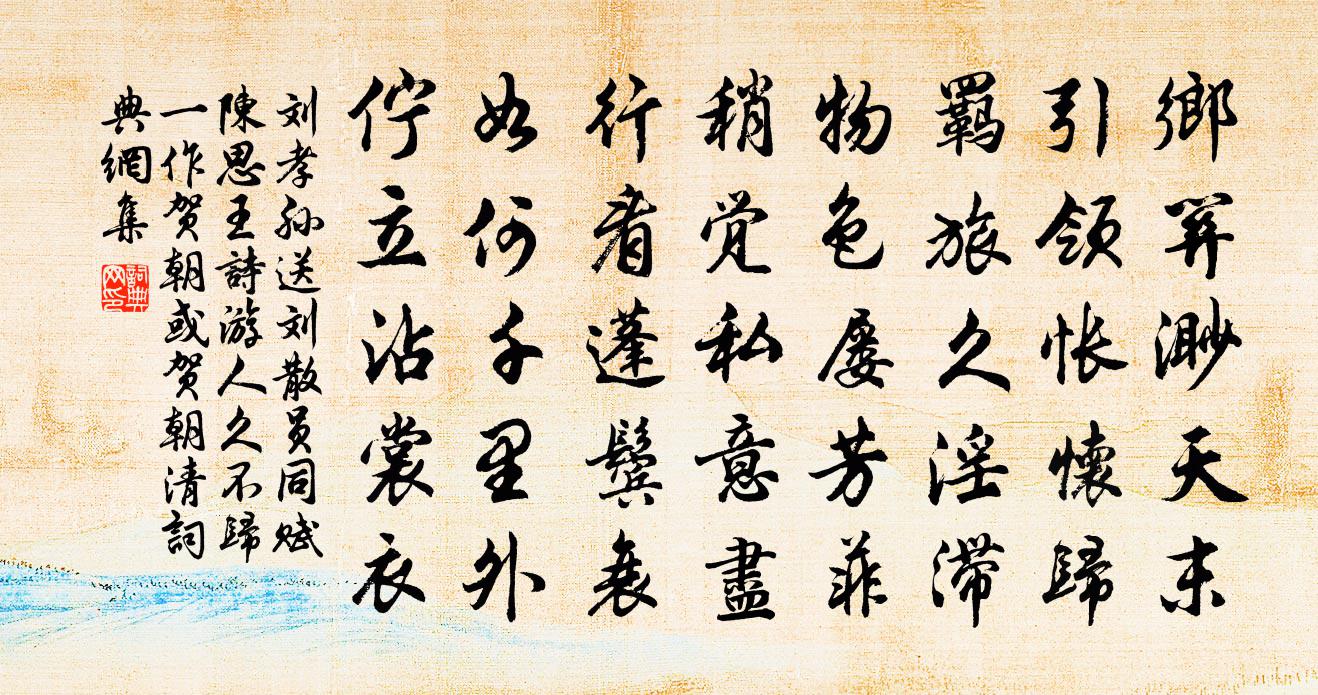 鄉關渺天末
引領悵懷歸
羈旅久淫滯
物色屡芳菲
稍觉私意盡
行看蓬鬢衰
如何千里外
佇立沾裳衣
刘孝孙送刘散员同赋
陳思王詩游人久不歸
一作贺朝或贺朝清詞
典網集
詞典网印